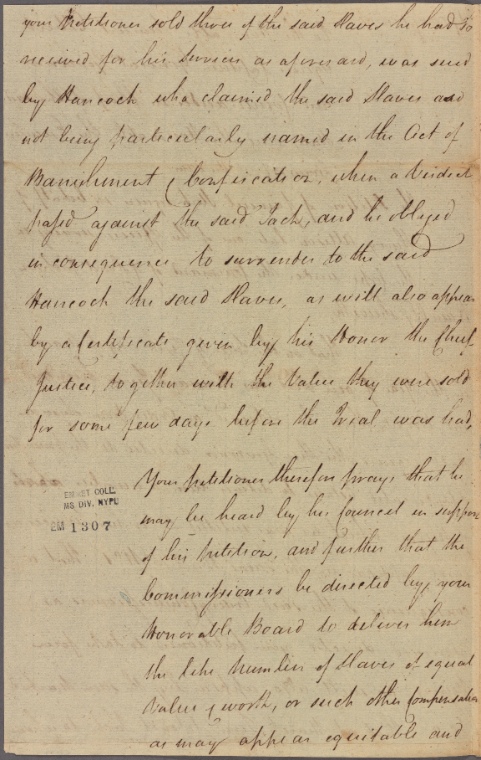 your Petitioner sold three of the said Slaves he had so
received for his Services as aforesaid, was sued
by Hancock who claimed the said Slaves and
not being particularly named in the Act of
Banishment & Confiscation, when a Verdict
passed against the said Jack, and he obliged
in consequence to surrender to the said
Hancock the said Slaves, as will also appear
by a Certificate given by his Honor the Chief
Justice, together with the Value they were sold
for some few days before the Trial was had,
Your petitioner therefore prays that he
may be heard by his Council in support
of his Petition, and further that the
Commissioners be directed by your
Honorable Board to deliver him
the like Number of Slaves of equal
Value & worth, or such other Compensation
as may appear equitable and
EMMET COLL.
MS DIV. NYPL
EM 1307